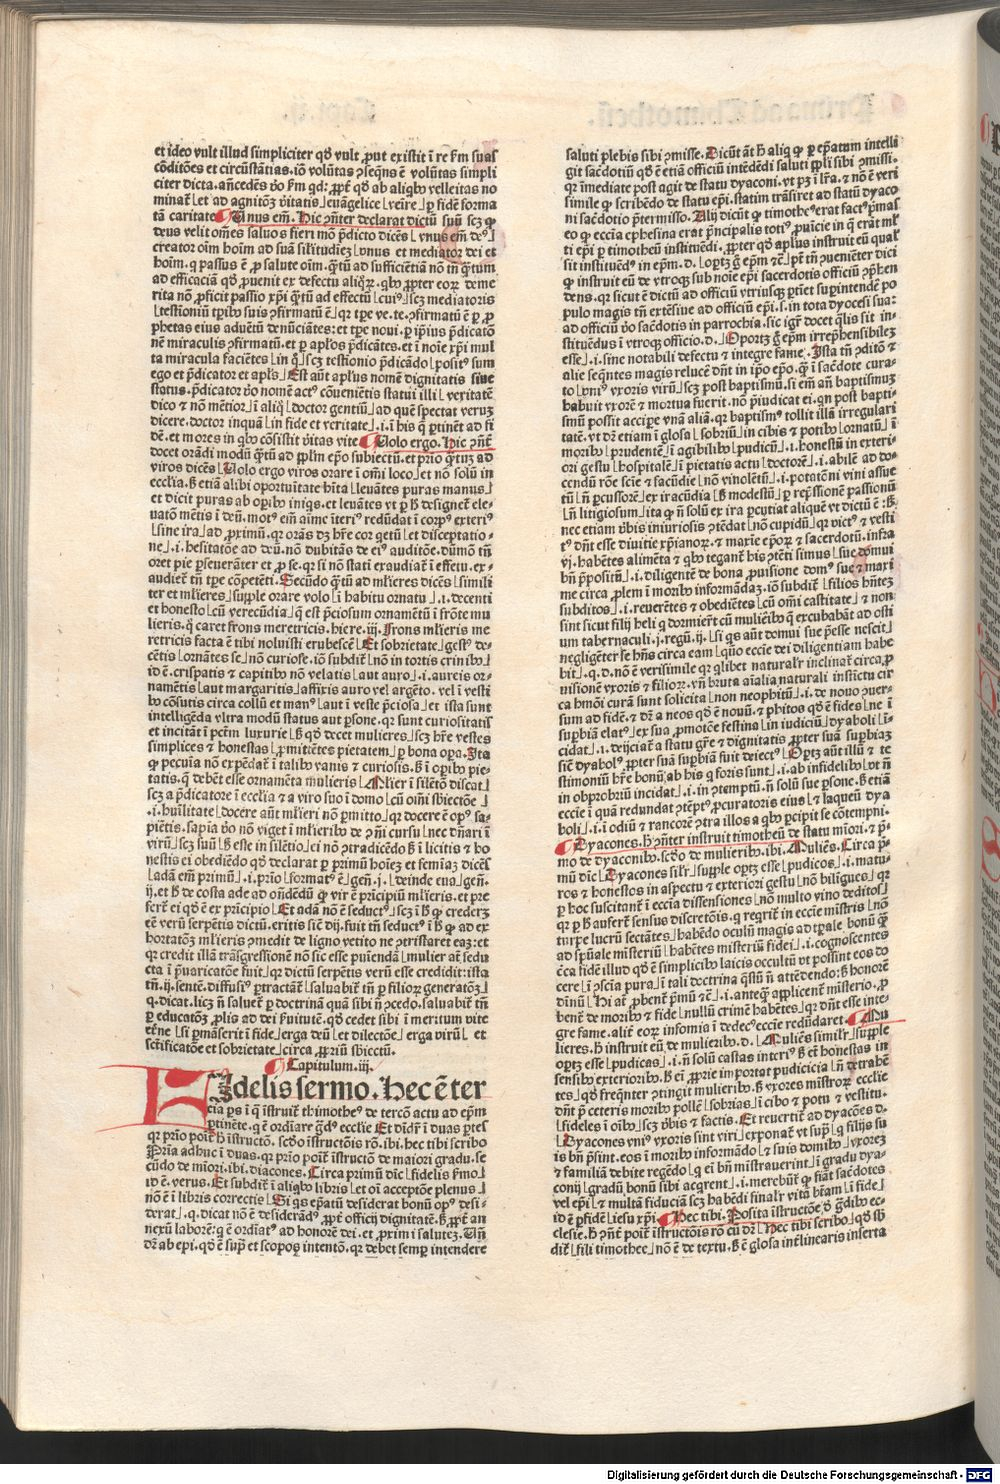 et ideo vult illud simpliciter qḋ vult ꝓut existit ī re ẜm suas
cōditōes et circūstātias. iō volūtas ꝯseq̄ns ē volūtas simpli
citer dicta. añcedēs ḃo ẜm qd: ꝓpt̄ qḋ ab aliqḃo velleitas no
minat̄ et ad agnitōꝫ v̄itatis euāgelice veīre ꝑ fidē forma
tā caritate Unus em̄. Hic ꝯn̄ter declarat dictū suū scꝫ ꝙ
deus velit om̄es saluos fieri mō p̄dicto dicēs vnus em̄ deꝰ
creator oīm hoīm ad suā sil̄itudieꝫ vnus et mediator dei et
hoīm. q passus ē ꝓ salute oīm. q̄tū ad sufficiētiā nō tn̄ q̄tum
ad efficaciā qḋ ꝓuenit ex defectu aliqͦꝝ. qḃo ꝓpter eoꝝ deme
rita nō ꝓficit passio xp̄i q̄tū ad effectū cuiꝰ scꝫ mediatoris
testioniū tꝑibo suis ꝯfirmatū ē
phetas eius aduētū denūciātes: et tꝑe noui. ꝑ ip̄ius p̄dicatō
nē miraculis ꝯfirmatū. et ꝑ apl̄os p̄dicātes. et ī noīe xp̄i mul
ta miracula faciētes in q̄ scꝫ testionio p̄dicādo positꝰ sum
ego p̄dicator et apl̄s Est aūt apl̄us nomē dignitatis siue
status. p̄dicator ḃo nomē actꝰ cōueniētis statui illi veritatē
dico et nō mētior ī aliq̄ doctor gentiū ad quē spectat veruꝫ
dicere. doctor inquā in fide et veritate .i. ī his q̄ ꝑtinēt ad fi
dē. et mores in qḃo cōsistit v̄itas vite Uolo ergo. Hic ꝯn̄t̄
docet orādi modū q̄tū ad ppl̄m ep̄o subiectū. et prīo q̄tuꝫ ad
viros dicēs Uolo ergo viros orare ī om̄i loco et nō solū in
eccl̄ia. ẞ etiā alibi oportuītate hīta leuātes puras manus
et dicit puras ab oꝑibo iniqs. et leuātes vt ꝑ h̄ designet̄ ele
uatō mētis ī deū. motꝰ em̄ aīme īteriꝰ redūdat ī corpꝰ exteriꝰ
sine ira ad ꝓximū. qꝛ orās dꝫ hr̄e cor getū et disceptatio
ne .i. hesitatōe ad deū. nō dubitās de eiꝰ auditōe. dūmō tn̄
oret pie ꝑseuerāter et ꝓ se. qꝛ si nō stati exaudiat̄ ī effetu. ex-
audiet̄ tn̄ tꝑe cōpetēti. Secūdo q̄tū ad ml̄ieres dicēs simili
ter et ml̄ieres supple orare volo ī habitu ornatu .i. decenti
et honesto cū verecūdia q̄ est p̄ciosum ornamētū ī frōte mu
lieris. q̄ caret frons meretricis. hiere. iij. Frons ml̄ieris me
retricis facta ē tibi noluisti erubescē Et sobrietate gestꝰ de
cētis ornātes se nō curiose. iō subdit̄ nō in tortis crinibo
id ē. crispatis et capitibo nō velatis aut auro .i. aureis or-
namētis aut margaritis affixis auro vel argēto. vel ī vesti
bo cōsutis circa collū et manꝰ aut ī veste p̄ciosa et ista sunt
intelligēda vltra modū status aut ꝑsone. qꝛ sunt curiositatis
et incitāt ī pctm̄ luxurie ẞ qḋ decet mulieres scꝫ hr̄e vestes
simplices et honestas ꝓmitētes pietatem ꝑ bona oꝑa. Ita
ꝙ pecuīa nō expēdat̄ ī talibo vanis et curiosis. ẞ ī oꝑibo pie-
tatis. q̄ debēt esse ornamēta mulieris Mlier ī silētō discat
scꝫ a p̄dicatore ī eccl̄ia et a viro suo ī domo cū om̄i sbiectōe
.i. hūilitate docere aūt ml̄ieri nō ꝑmitto qꝛ docere ē opꝰ sa
piētis. sapīa ḃo nō viget ī ml̄ieribo de ꝯn̄i cursu nec dn̄ari ī
virū scꝫ suū ẞ esse in silētio ei nō ꝯtradicēdo ẞ ī licitis et ho
nestis ei obediēdo qḋ declarat ꝑ primū hoīeꝫ et femiaꝫ dicēs
adā em̄ primū .i. prīo formatꝰ ē gen̄. j. deinde eua gen̄.
ij. et h̄ de costa ade ad ondēdū ꝙ vir ē p̄ncipiū ml̄ieris. et pre
fert̄ ei qḋ ē ex pr̄ncipio Et adā nō ē seductꝰ scꝫ ī h̄ ꝙ crederꝫ
eē verū serpētis dictū. eritis sic̄ dij. fuit tn̄ seductꝰ ī h̄ ꝙ ad ex
hortatōꝫ ml̄ieris ꝯmedit de ligno vetito ne ꝯtristaret eaꝫ: et
qꝛ credit illā trāsgressionē nō sic esse puīendā mulier āt sedu
cta ī p̄uaricatōe fuit qꝛ dictū serpētis verū esse credidit: ista
tn̄. ij. sentēt. diffusiꝰ ꝑtractāt̄ saluabit̄ tn̄ ꝑ filioꝝ generatōꝫ
q. dicat. licꝫ n̄ saluet̄ ꝑ doctrinā quā sibi n̄ ꝯcedo. saluabit̄ tn̄
ꝑ educatōꝫ ꝓlis ad dei ẞuitutē. qḋ cedet sibi ī meritum vite
et̄ne si ꝑmāserit ī fide erga deū et dilectiōe erga virū et
sctificatōe et sobrietate circa ꝓpriū sbiectū.
Capitulum .iij.
Fidelis sermo. Hec ē ter
cia ps ī q̄ īstruit̄ thimotheꝰ de tercō actu ad ep̄m
ꝑtinēte. q̄ ē ordīare ḡdꝰ eccl̄ie Et diḋr ī duas ꝑtes
qꝛ prīo poīt h̄ īstructō. scḋo īstructōis rō. ibi. hec tibi scribo
Prīa adhuc ī duas. qꝛ prīo poīt̄ īstructō de maiori gradu. se
cūdo de miori. ibi. diacones. Circa primū dic̄ fidelis ẜmo
id ē verus. Et subdit̄ ī aliqḃo libris et oī acceptōe plenus
nō ē ī libris correctis Si qs ep̄atū desiderat bonū opꝰ desi-
derat. q. dicat nō ē desiderādꝰ ꝓpt̄ officij dignitatē. ẞ ꝓpt̄ an
nexū laborē: q̄ ē ordīatꝰ ad honorē dei. et ꝓximi saluteꝫ. Un̄
dr̄ ab epi. qḋ ē supͣ et scopoꝝ intentō. qꝛ debet semꝑ intendere
saluti plebis sibi ꝯmisse. Dicūt āt h̄ aliq̄ ꝙ ꝑ ep̄atum intelli
git sacdotiū qḋ ē etiā officiū intēdēdi saluti ppl̄i sibi ꝯmissi.
qꝛ īmediate post agit de statu dyaconi. vt pꝫ ī lr̄a. et nō ē veri
simile ꝙ scribēdo de statu ep̄i. statim trāsiret ad statū dyaco
ni sacdotio p̄termisso. Alij dicūt ꝙ timotheꝰ erat factꝰ p̄mas
eo ꝙ eccīa ephesina erat p̄ncipalis totiꝰ ꝓuicie in q̄ erāt ml̄
ti ep̄i ꝑ timotheū instituēdi. ꝓpter qḋ apl̄us instruit eū qual̄
sit instituēdꝰ in ep̄m. d. optꝫ g̃ ep̄m
ꝙ instruit eū de vtroqꝫ sub noīe ep̄i sacerdotis officiū ꝯp̄hen
dens. qꝛ sicut ē dictū ad officiū vtriusqꝫ ꝑtiet suꝑintendē po
pulo magis tn̄ extēsiue ad officiū ep̄i. s. in tota dyocesi sua:
ad officiū ḃo sac̄dotis in parrochia. sic igr̄ docet q̄lis sit in-
stituēdus ī vtroqꝫ officio. d. Oportꝫ g̃ ep̄m irrep̄hensibileꝫ
esse .i. sine notabili defectu et integre fame. Ista tn̄ ꝯditō et
alie seq̄ntes magis relucē dn̄t in ip̄o ep̄o. q̄ ī sac̄dote cura-
to vniꝰ vxoris virū scꝫ post baptismū. si em̄ añ baptismuꝫ
habuit vxorē et mortua fuerit. nō p̄iudicat ei. qn post bapti-
smū possit accipe vnā aliā. qꝛ baptismꝰ tollit illā irregulari
tatē. vt dr̄ etiam ī glosa sobriū in cibis et potibo ornatū ī
moribo prudentē ī agibilibo pudicū .i. honestū in exteri-
ori gestu hospitalē ī pietatis actu doctorē .i. abilē ad do-
cendū rōe scīe et sac̄udīe nō vinolētū .i. potatorē vini assue
tū n̄ ꝑcussorē ex iracūdia ẞ modestū ꝑ rep̄ssionē passionū
n̄ litigiosum ita ꝙ n̄ solū ex ira ꝑcutiat aliquē vt dictū ē : ẞ
nec etiam v̄bis iniuriosis ꝯtēdat nō cupidū qꝛ victꝰ et vesti
tꝰ dn̄t esse diuitie xp̄ianoꝝ. et maxīe ep̄oꝝ et sacerdotū. infra
vj. habētes alimēta et qḃo tegant̄ his ꝯtēti simus sue domui
bn̄ p̄positū .i. diligentē de bona ꝓuisione domꝰ sue et maxi
me circa ꝓlem ī moribo informādaꝫ. iō subdit̄ filios hn̄teꝫ
subditos .i. reuerētes et obediētes cū om̄i castitate et non
sint sicut filij heli q̄ dormiert̄ cū mulieribo q̄ excubabāt ad osti
um tabernaculi .j. regū. ij. si qs aūt domui sue p̄esse nescit
negligēter se hn̄s circa eam quo eccīe dei diligentiam habe
bit .q. d. nō ē verisimile qꝛ qlibet naturalꝛ̄ inclinat̄ circa ꝓ
uisionē vxoris et filioꝝ. vn̄ bruta aīalia naturali instictu cir
ca hmōi curā sunt solicita non neophitū .i. de nouo ꝯuer-
sum ad fidē. et dr̄ a neos qḋ ē nouū. et phitos qḋ ē fides ne ī
suꝑbiā elatꝰ ex sua ꝓmotōe festina in iudiciū dyaboli ī-
cidat .i. deijciat̄ a statu gr̄e et dignitatis ꝓpter suā suꝑbiaꝫ
sic̄ dyabolꝰ ꝓpter suā suꝑbiā fuit deiectꝰ Optꝫ aūt illū et te
stimoniū hr̄e bonū ab his q̄ foris sunt .i. ab infidelibo vt n̄
in obprobriū incidat .i. in ꝯtemptū. n̄ solū sue ꝑsone. ẞ etiā
eccīe ī quā redundat ꝯtēptꝰ ꝓcuratoris eius et laqueū dya
boli .i. ī odiū et rancorē ꝯtra illos a qḃo ꝑcipit se cōtempni.
Dyacones. h̄ ꝯn̄ter instruit timotheū de statu mīori. et p̄-
mo de dyaconibo. scḋo de mulieribo. ibi. Muliēs. Circa p̄-
mū dic̄ Dyacones silꝛ̄ supple optꝫ esse pudicos .i. matu-
ros et honestos in aspectu et exteriori gestu nō biligues qꝛ
ꝑ hoc suscitant̄ ī eccīa dissensiones nō multo vino deditos
qꝛ ꝑ h̄ aufert̄ sensus discretōis. q̄ regrit̄ in eccīe mīstris nō
turpe lucrū sectātes habēdo oculū magis ad tꝑale bonū q̄
ad sp̄uale misteriū habētes misteriū fidei .i. cognoscentes
c̄ca fidē illud qḋ ē simplicibo laicis occultū vt possint eos do
cere ī ꝯscīa pura ī tali doctrina q̄stū n̄ attēdendo: ẞ honorē
diuinū Hi āt ꝓbent̄ p̄mū .i. anteq̄ applicent̄ misterio. ꝓ
bent̄ de moribo et fide nullū crimē habētes qꝛ dn̄t esse inte-
gre fame. alit̄ eoꝝ infomia ī dedecꝰ eccīe redūdaret. Mu
lieres. h̄ instruit eū de mulieribo. d. Muliēs similꝛ̄ supple
optꝫ esse pudicas .i. n̄ solū castas interiꝰ ẞ et honestas in
sensibo exterioribo. ẞ ei ꝓprie importat pudicicia n̄ detrahē
tes qḋ freq̄nter ꝯtingit mulieribo. ẞ vxores mīstroꝝ eccl̄ie
dn̄t p̄ ceteris moribo pollē sobrias ī cibo et potu et vestitu.
fideles ī oībo scꝫ v̄bis et factis. Et reuertit̄ ad dyacōes d.
Dyacones vniꝰ vxoris sint viri exponat̄ vt supͣ q̄ filijs su
is bn̄ p̄sint. eos ī moribo informādo et suis domibo vxoreꝫ
et familiā debite regēdo q̄ ei bn̄ mīstrauerint ī gradu dya-
conij gradū bonū sibi acqrent .i. merebūt̄ ꝙ fiāt sac̄dotes
vel ep̄i et multā fiduciā scꝫ habēdi finalꝛ̄ vitā btām ī fide
id ē ꝑ fidē iesu xp̄i Hec tibi. Posita īstructōe de gdibo ec-
clesie. h̄ ꝯn̄t̄ poīt̄ īstructōis rō cū dr̄ Hec tibi scribo qḋ sb
dit̄ fili timothee nō ē de textu. ẞ ē glosa int̄linearis inserta
Digitalisierung gefördert durch die Deutsche Forschungsgemeinschaft - DFG